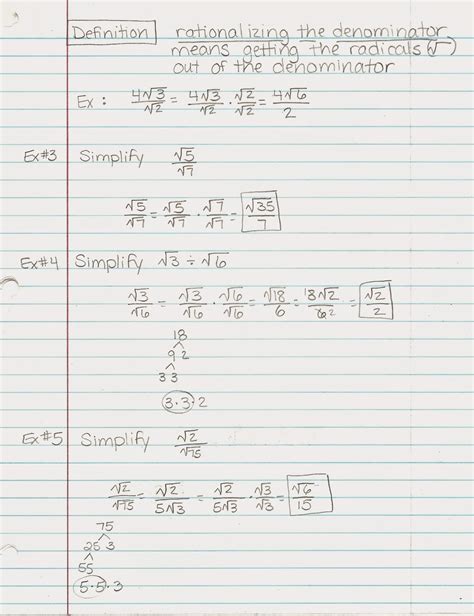 Definition rationalizing the denominator
means getting the radicals (√)
out of the denominator
Ex : 4√3/√2 = 4√3/√2 · √2/√2 = 4√6/2
Ex#3 Simplify √5/√7
√5/√7 = √5/√7 · √7/√7 = √35/7
Ex#4 Simplify √3 ÷ √6
√3/√6 = √3/√6 · √6/√6 = √18/6 = 3√2/6 2 = √2/2
18
9 2
3 3
3·3·2
Ex#5 Simplify √2/√75
√2/√75 = √2/5√3 = √2/5√3 · √3/√3 = √6/15
75
25 3
5 5
5·5·3